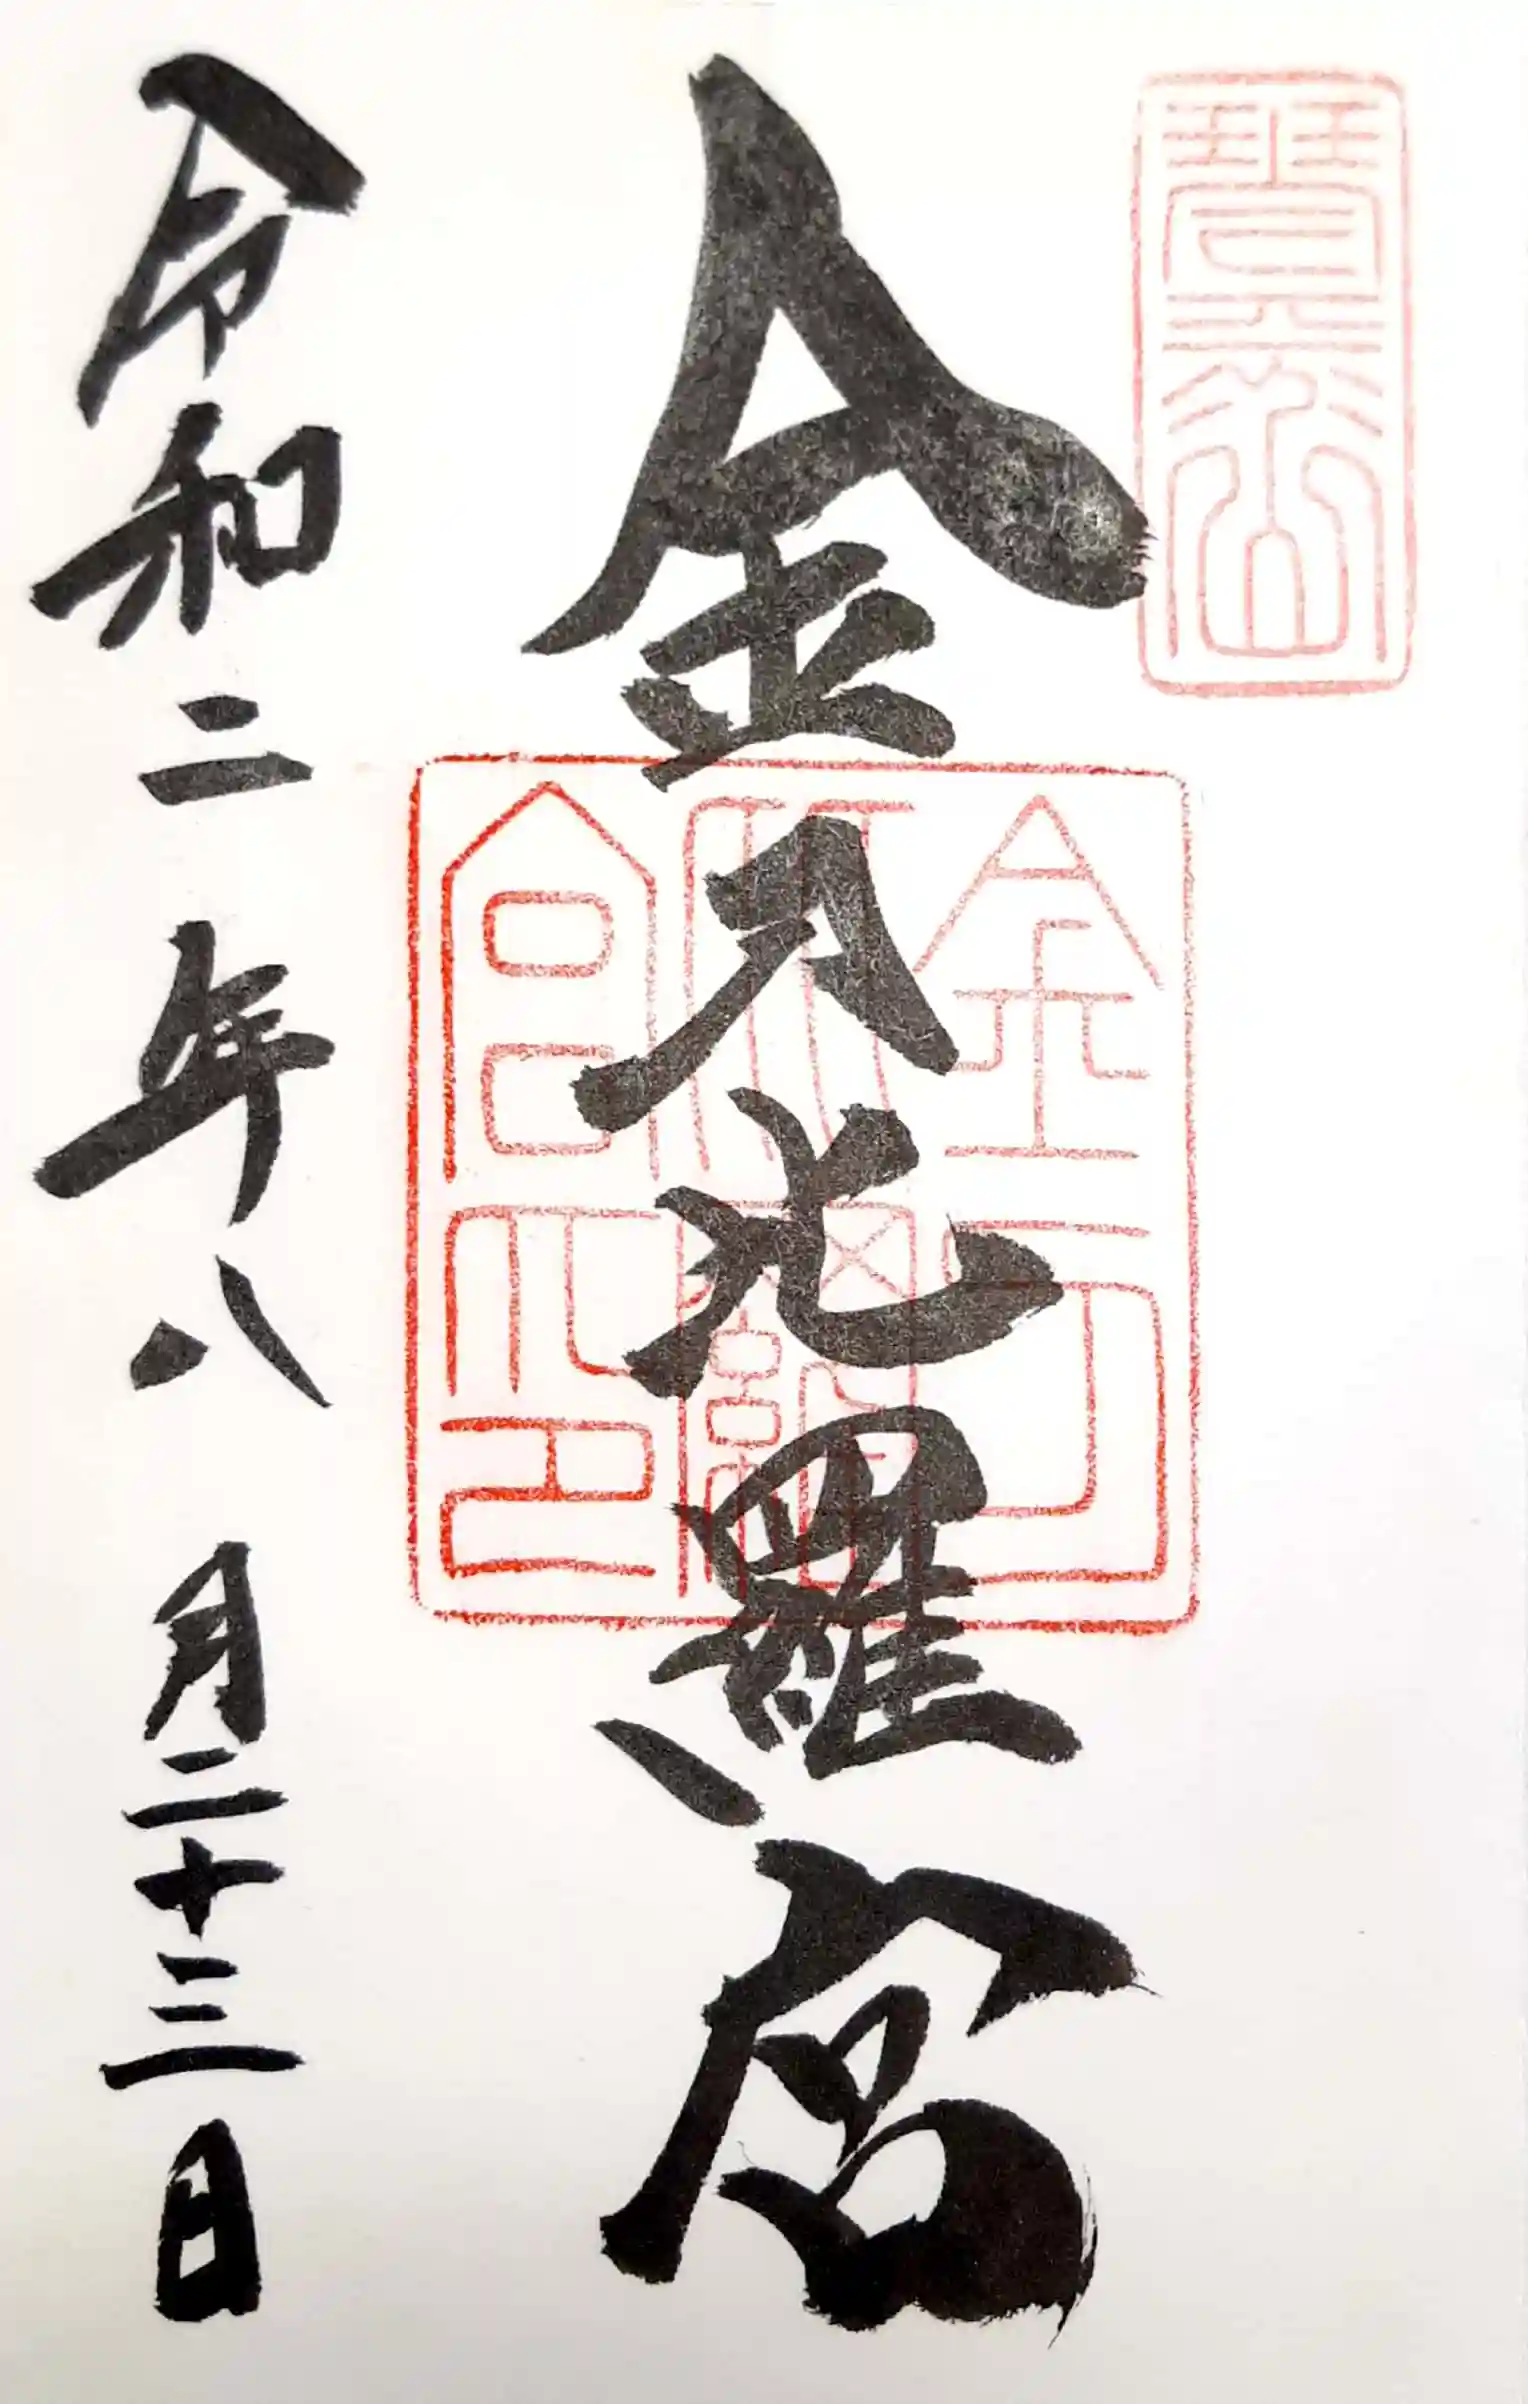 琴平山
金刀比羅宮
金刀
比羅
宮印
令和二年八月二十三日